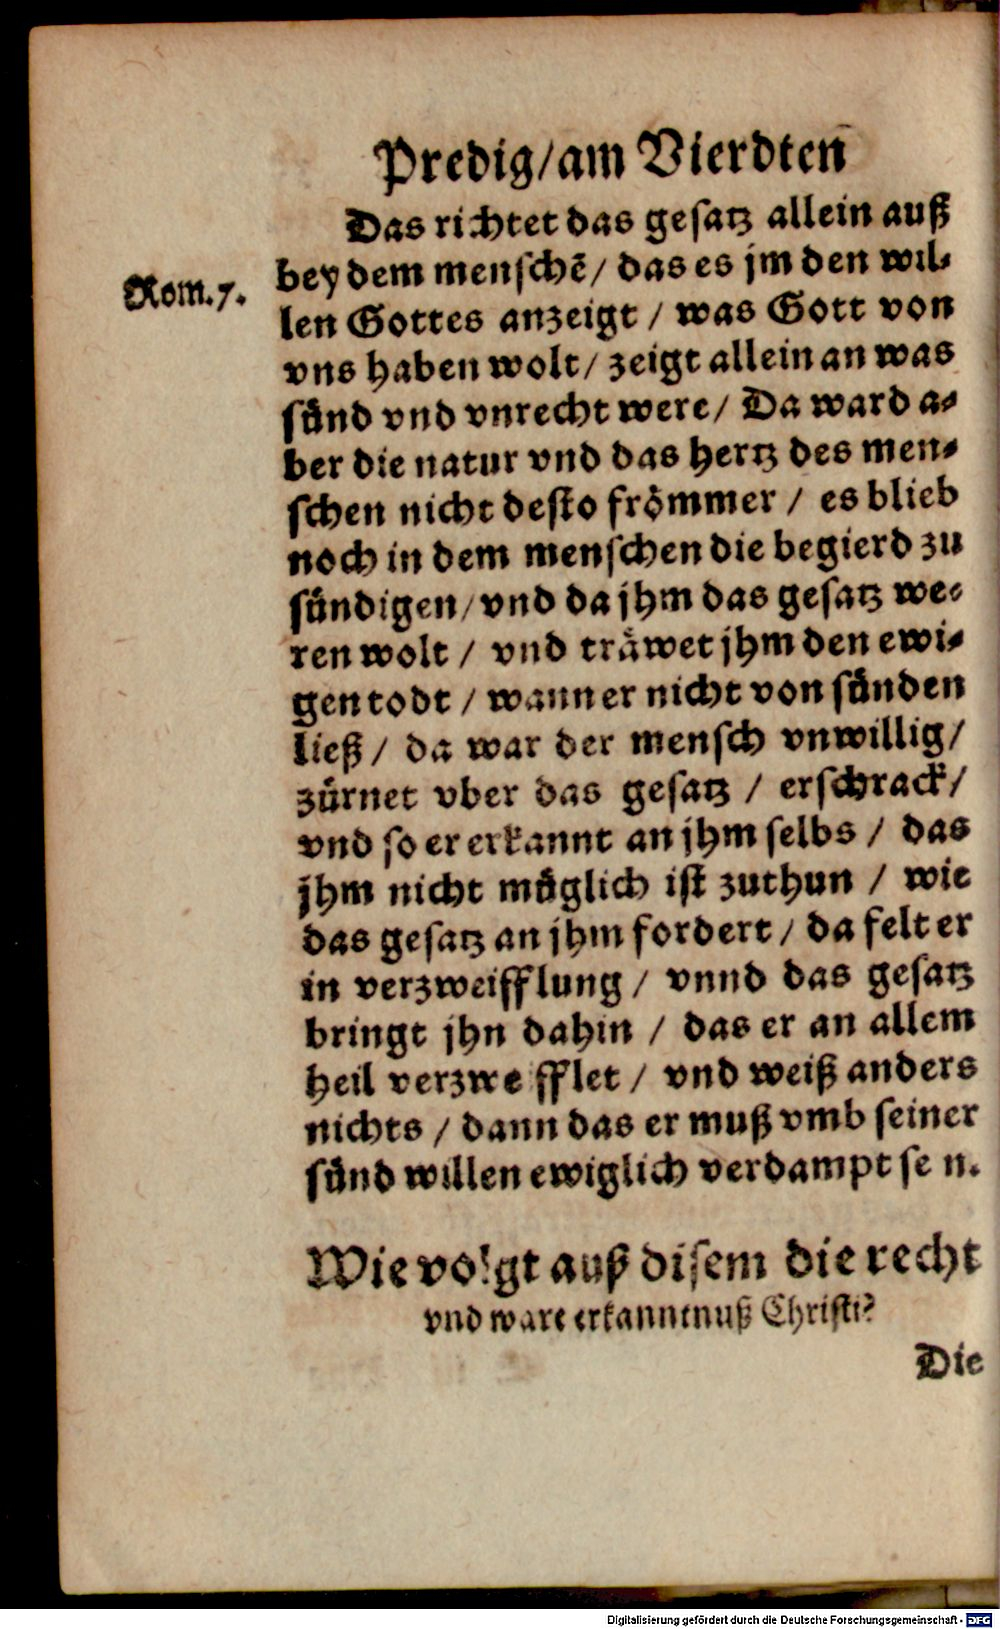 Predig/am Vierdten
Das richtet das gesatz allein auß
Rom.7.
bey dem menschẽ/ das es jm den wil⸗
len Gottes anzeigt / was Gott von
vns haben wolt/ zeigt allein an was
sünd vnd vnrecht were/ Da ward a⸗
ber die natur vnd das hertz des men⸗
schen nicht desto frömmer / es blieb
noch in dem menschen die begierd zu
sündigen/ vnd da jhm das gesatz we⸗
ren wolt / vnd träwet jhm den ewi⸗
gen todt / wann er nicht von sünden
ließ/ da war der mensch vnwillig/
zürnet vber das gesatz / erschrack/
vnd so er erkannt an jhm selbs / das
jhm nicht müglich ist zuthun / wie
das gesatz an jhm fordert/ da felt er
in verzweifflung/ vnnd das gesatz
bringt jhn dahin / das er an allem
heil verzwe fflet/ vnd weiß anders
nichts / dann das er muß vmb seiner
sünd willen ewiglich verdampt se n.
Wie volgt auß disem die recht
vnd ware erkanntnuß Christi?
Die
Digitalisierung gefördert durch die Deutsche Forschungsgemeinschaft - DFG